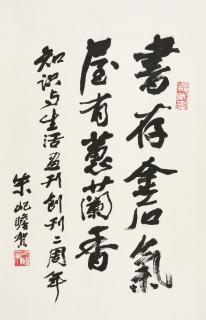 書存金石氣
屋有蕙蘭香
知识与生活畫刊創刊二周年
朱屺瞻賀